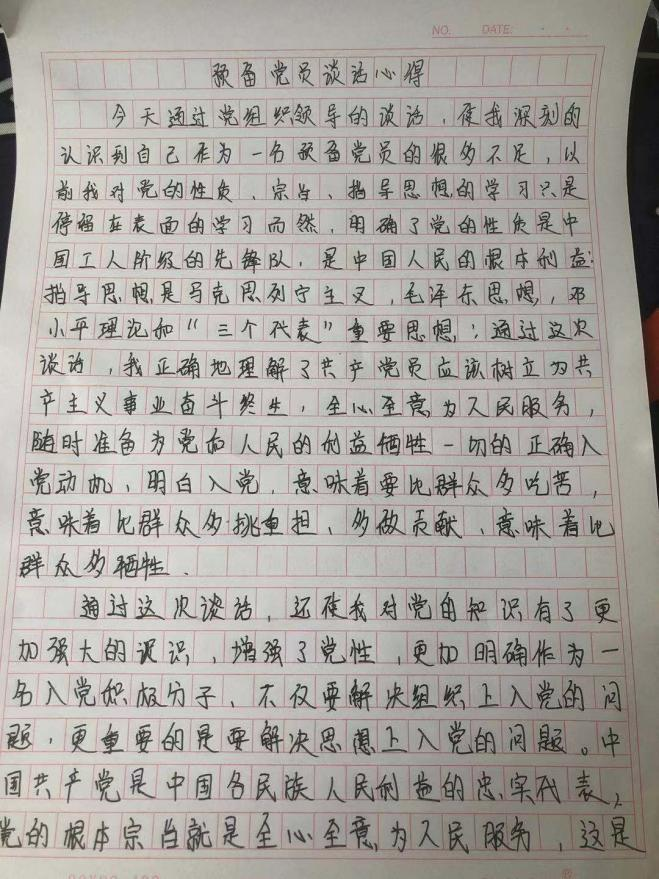 NO. DATE: . .
预备党员谈话心得
今天通过党组织领导的谈话，使我深刻的
认识到自己作为一名预备党员的很多不足，以
前我对党的性质、宗旨、指导思想的学习只是
停留在表面的学习而然，明确了党的性质是中
国工人阶级的先锋队，是中国人民的根本利益；
指导思想是马克思列宁主义，毛泽东思想，邓
小平理论和“三个代表”重要思想；通过这次
谈话，我正确地理解了共产党员应该树立为共
产主义事业奋斗终生，全心全意为人民服务，
随时准备为党和人民的利益牺牲一切的正确入
党动机，明白入党，意味着要比群众多吃苦，
意味着比群众多挑重担、多做贡献、意味着比
群众多牺牲．
通过这次谈话，还使我对党的知识有了更
加强大的认识，增强了党性，更加明确作为一
名入党积极分子，不仅要解决组织上入党的问
题，更重要的是要解决思想上入党的问题。中
国共产党是中国各民族人民利益的忠实代表，
党的根本宗旨就是全心全意为人民服务，这是